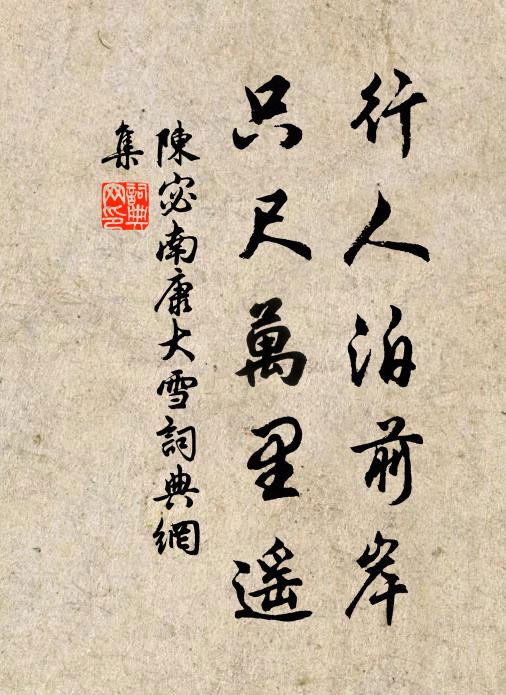 行人泊前岸
只尺萬里遥
陳宓南康大雪詞典網
集
詞典
网印